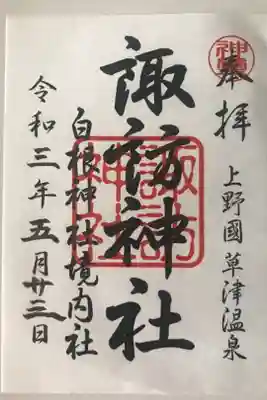 奉拝
上野國草津温泉
諏訪神社
諏訪神社
白根神社境内社
令和三年五月廿三日